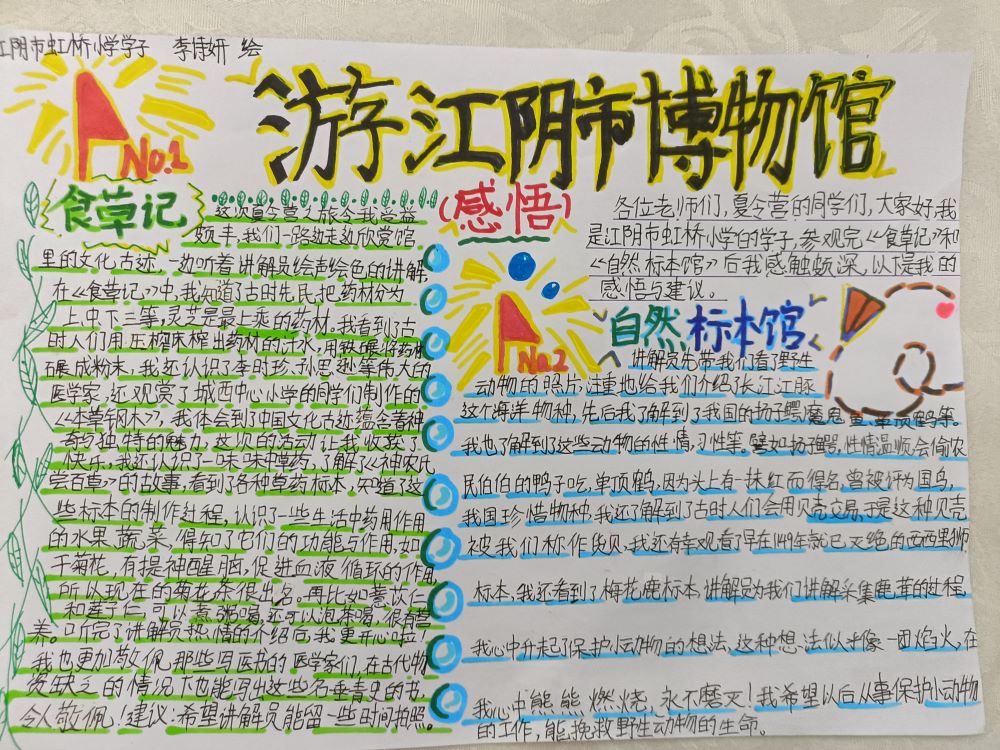 江阴市虹桥小学学子 李诗妍 绘
游江阴市博物馆
No.1
食草记
这次夏令营之旅令我受益
颇丰,我们一路边走边欣赏馆
里的文化古迹,一边听着讲解员绘声绘色的讲解
在《食草记》中,我知道了古时先民把药材分为
上中下三等,灵芝是最上乘的药材。我看到了古
时人们用压榨床榨出药材的汁水,用铁碾将药材
碾成粉末,我还认识了李时珍、孙思邈等伟大的
医学家,还观赏了城西中心小学的同学们制作的
《本草钢木》,我体会到中国文化古迹蕴含着种
奇与独特的魅力,这次的活动让我收获了
快乐,我还认识了一味味中草药,了解了《神农氏
尝百草》的故事,看到了各种草药标本,知道了这
些标本的制作过程,认识了一些生活中药用作用
的水果、蔬菜,得知了它们的功能与作用,如
干菊花,有提神醒脑,促进血液循环的作用,
所以现在的菊花茶很出名。再比如薏苡仁
和莲子仁,可以煮粥喝,还可以泡茶喝,很有营
养。听完了讲解员热情的介绍后,我更开心啦!
我也更加敬佩那些写医书的医学家们,在古代物
资缺乏的情况下也能写出这些名垂青史的书,
令人敬佩!建议:希望讲解员能留一些时间拍照。
(感悟)
各位老师们,夏令营的同学们,大家好,我
是江阴市虹桥小学的学子,参观完《食草记》和
《自然标本馆》后我感触颇深,以下是我的
感悟与建议。
No.2
自然标本馆
讲解员先带我们看了野生
动物的照片,注重也给我们介绍了长江江豚
这个海洋物种,先后我了解到了我国的扬子鳄、鱼、单顶鹤等。
我也了解到了这些动物的性情、习性等。譬如扬子鳄,性情温顺,会偷农
民伯伯的鸭子吃,单顶鹤,因为头上有一抹红而得名,曾被评为国鸟,
我国珍惜物种,我还了解到古时人们会用贝壳交易,于是这种贝壳
被我们称作货贝,我还有幸观看了早在149年就已灭绝的西西里狮
标本,我还看到了梅花鹿标本,讲解员为我们讲解采集鹿茸的过程,
我心中升起了保护小动物的想法,这种想法似乎像一团焰火,在
我心中熊熊燃烧,永不磨灭!我希望以后从事保护小动物
的工作,能挽救野生动物的生命。